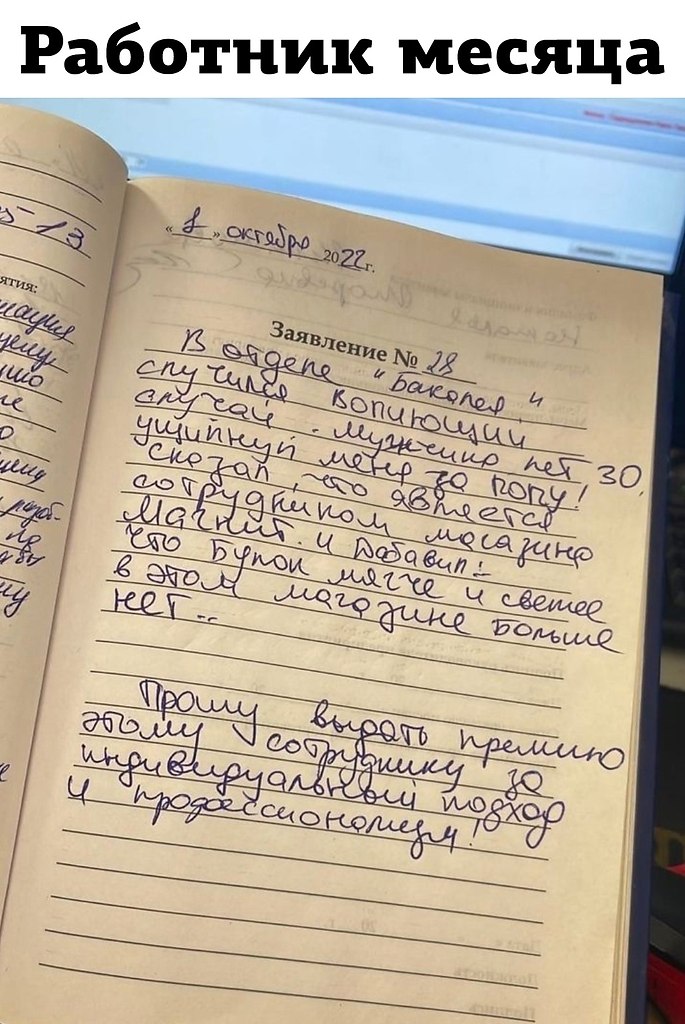 Работник месяца
"1" октября 2022г.
Заявление № 28
В отделе "Бакалея"
случился вопиющий
случай. Мужчина лет 30,
ущипнул меня за попу!
Сказал, что является
сотрудником магазина
Магнит. и Добавил:
что Булок мягче и свежее
в этом магазине Больше
нет..
Прошу выдать премию
этому сотруднику за
индивидуальный подход
и профессионализм!